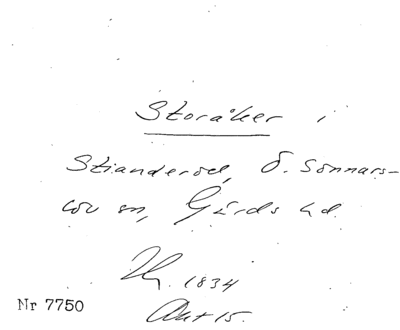 Storåker i
Stianderöd, Ö. Sönnars-
löv sn, Gärds hd.
Th. 1834
Akt 15.
Nr 7750